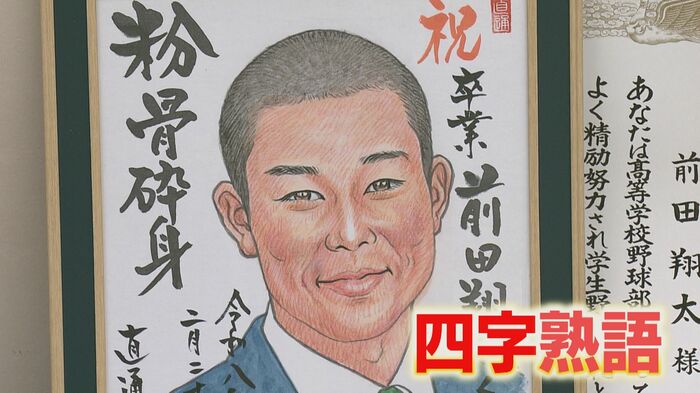 祝
卒業 前田翔
粉骨砕身
令和八
二月二
直通
四字熟語
前田翔太様
あなたは高等学校野球部
よく精励努力され学生野